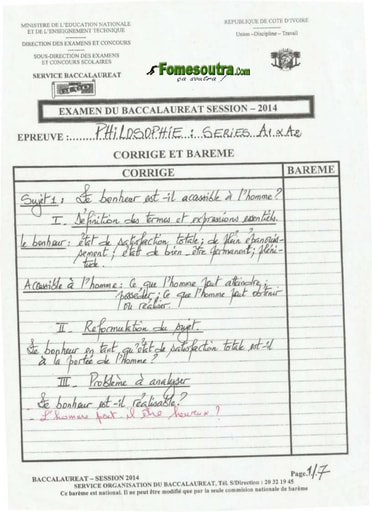 MINISTERE DE L'EDUCATION NATIONALE
ET DE L'ENSEIGNEMENT TECHNIQUE
DIRECTION DES EXAMENS ET CONCOURS
SOUS-DIRECTION DES EXAMENS
ET CONCOURS SCOLAIRES
SERVICE BACCALAUREAT
REPUBLIQUE DE COTE D'IVOIRE
Union - Discipline - Travail
Fomesoutra.com
ça soutra !
EXAMEN DU BACCALAUREAT SESSION – 2014
EPREUVE : PHILOSOPHIE : SERIES A1 & A2
CORRIGE ET BAREME
CORRIGE BAREME
Sujet 1 : Le bonheur est-il accessible à l'homme ?
I. Définition des termes et expressions essentiels.
le bonheur : état de satisfaction totale ; de plein épanouis-
sement ; état de bien être permanent ; pléni-
tude.
Accessible à l'homme : Ce que l'homme peut atteindre,
posséder ; Ce que l'homme peut obtenir
ou réaliser.
II. Reformulation du sujet.
Le bonheur en tant qu'état de satisfaction totale est-il
à la portée de l'homme ?
III. Problème à analyser
Le bonheur est-il réalisable ?
- L'homme peut-il être heureux ?
Page.1/7
BACCALAUREAT – SESSION 2014
SERVICE ORGANISATION DU BACCALAUREAT, Tél. S/Direction : 20 32 19 45
Ce barème est national. Il ne peut être modifié que par la seule commission nationale de barème